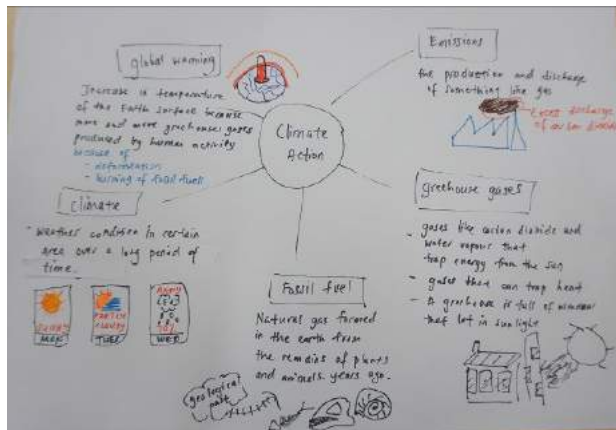 global warming
Increase in temperature
of the Earth surface because
more and more greehouse gases
produced by human activity
because of
- deforestation
- burning of fossil fuels
Climate
Action
Emissions
the production and discharge
of something like gas
Excess discharge
of carbon dioxide
climate
- weather condition in certain
area over a long period of
time.
SUNNY
MON
PARTLY
CLOUDY
TUES
WED
Fossil fuel
Natural gas formed
in the earth from
the remains of plants
and animals. years ago.
geological
past
greehouse gases
- gases like carbon dioxide and
water vapour that
trap energy from the sun
- gases that can trap heat
- A greehouse is full of windows
that let in sunlight